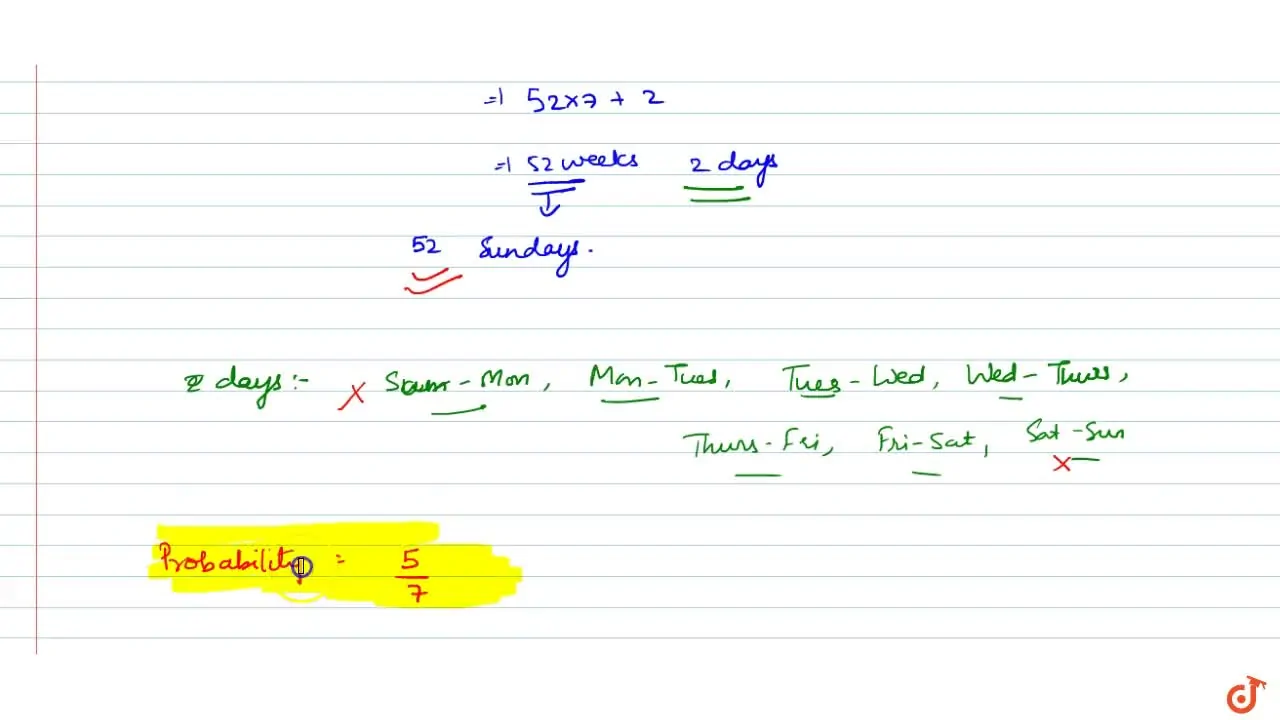 =) 52x7 + 2
=) 52 weeks 2 days
52 Sundays.
2 days :- x Sun - Mon, Mon - Tues, Tues - Wed, Wed - Thurs,
Thurs - Fri, Fri - Sat, Sat - Sun
x
Probability = 5/7